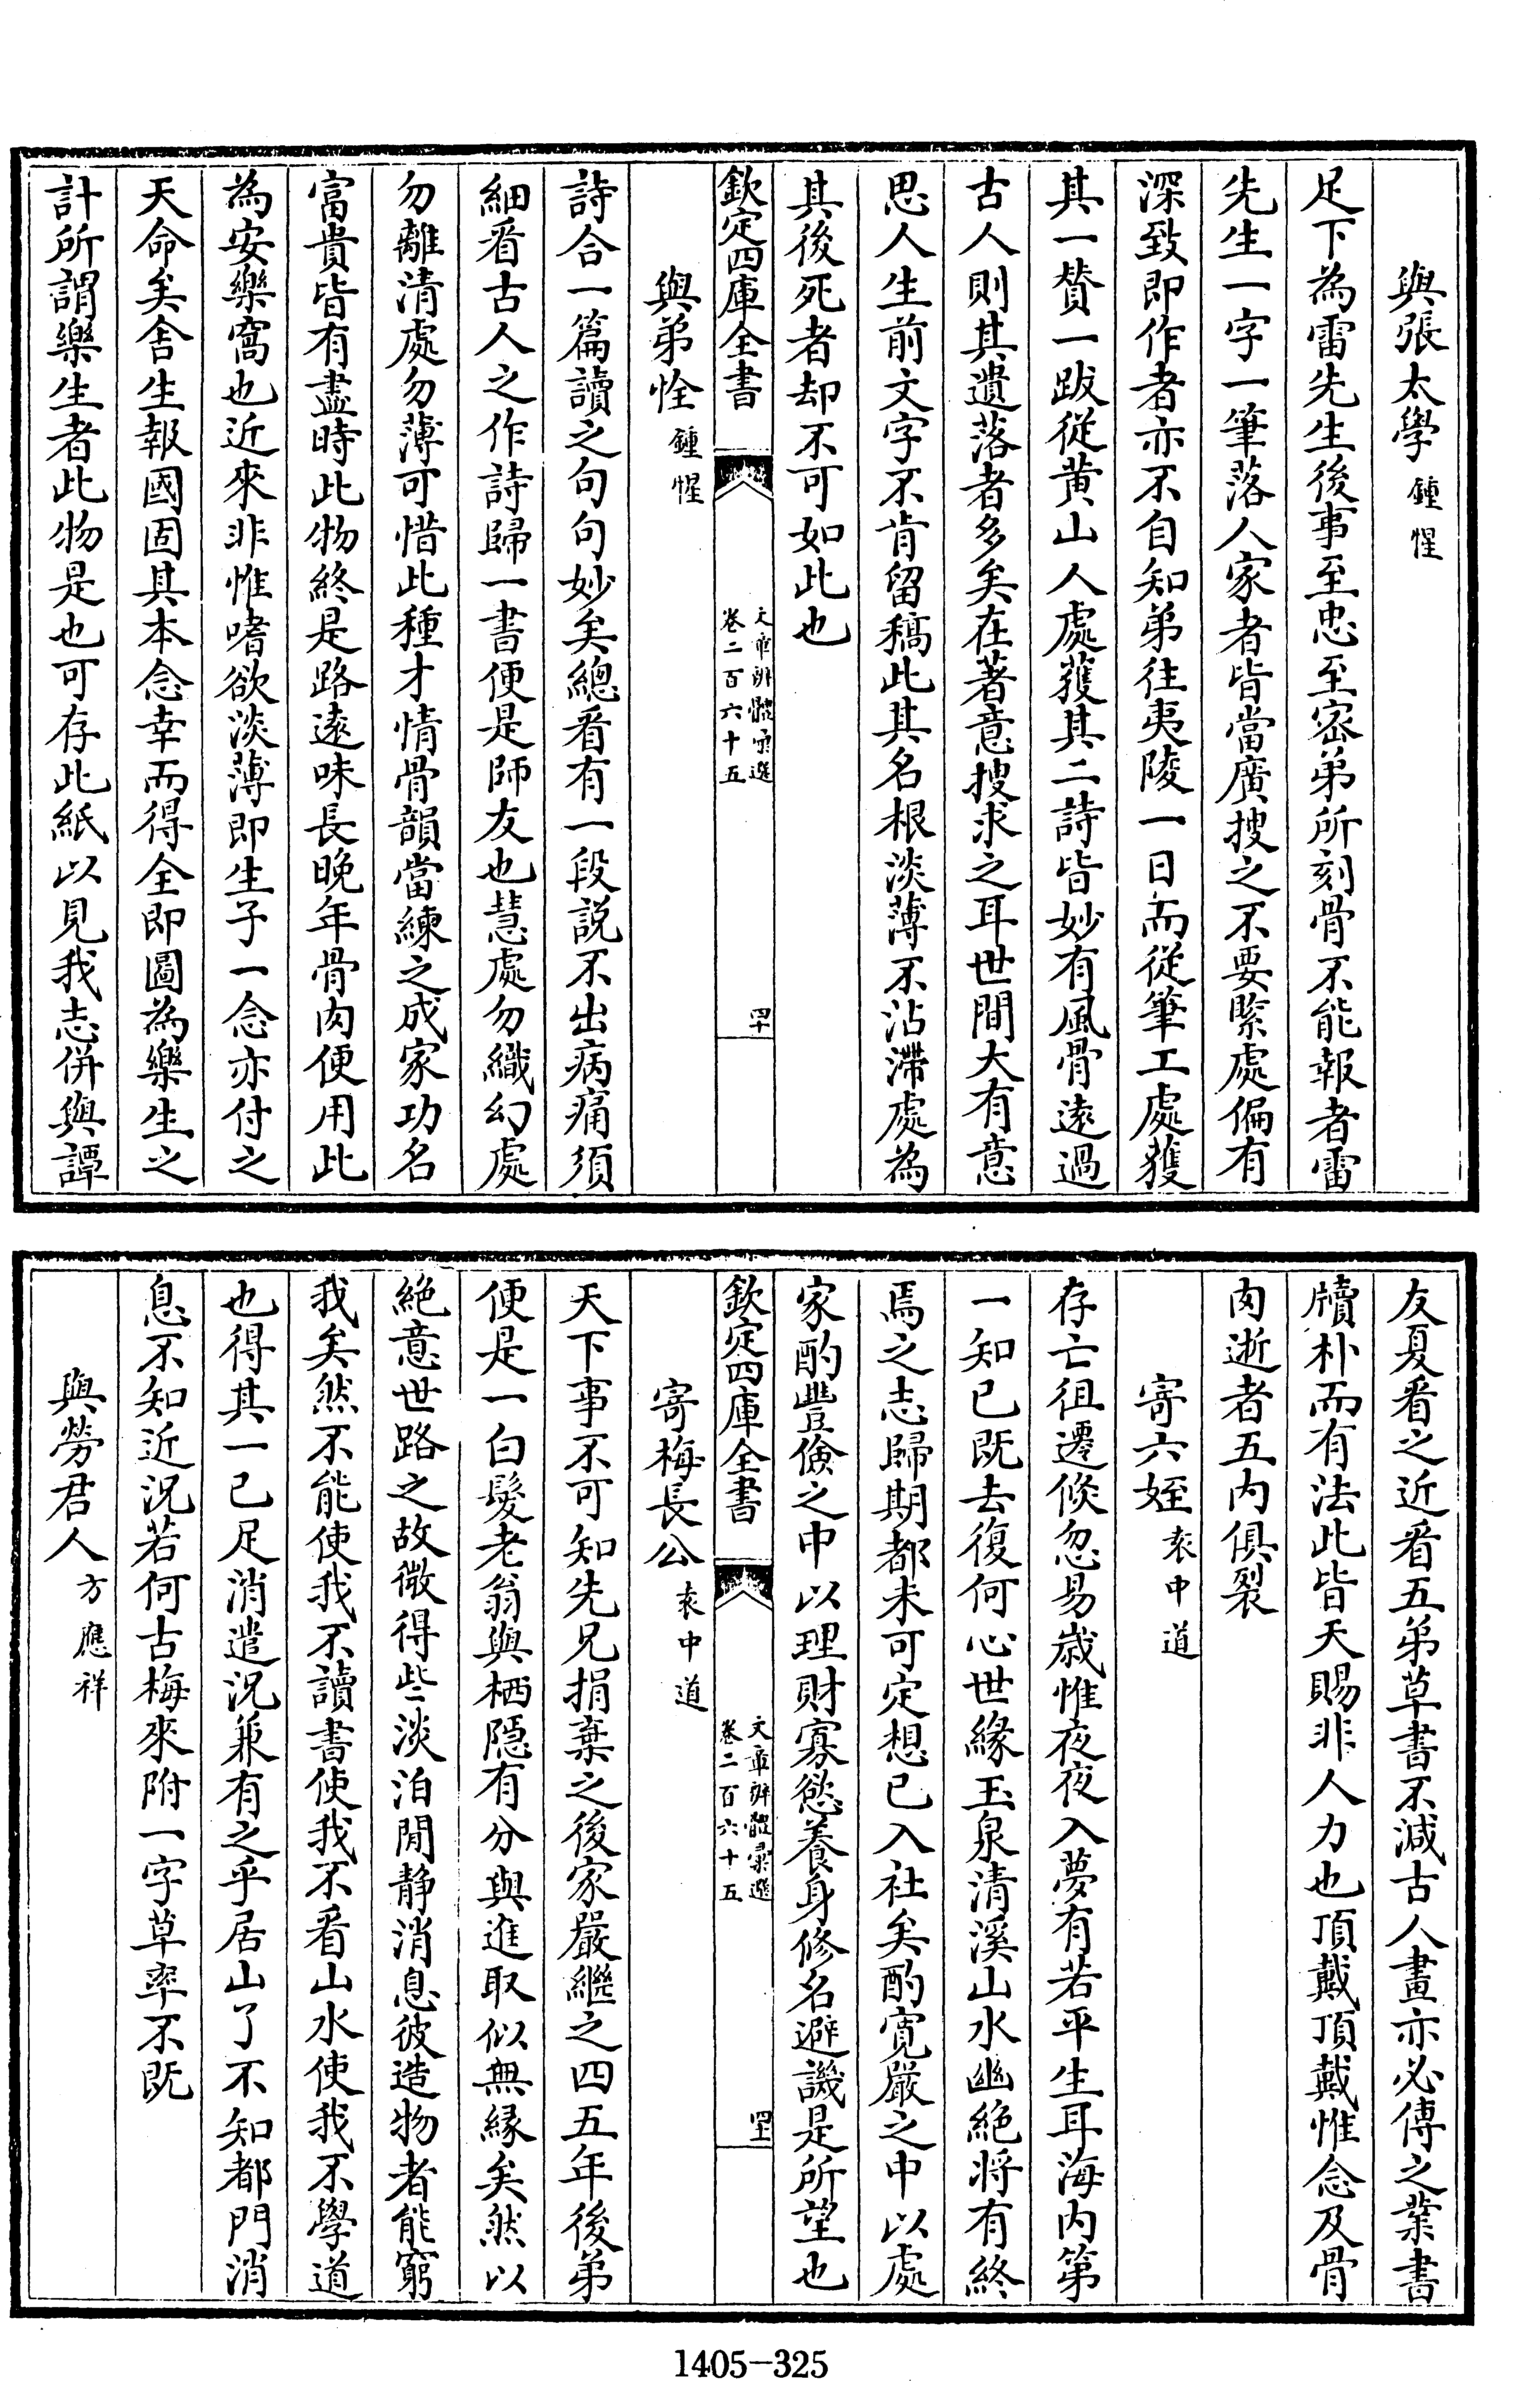 與張太學鍾惺
足下為雷先生後事至忠至宻弟所刻骨不能報者雷
先生一字一筆落人家者皆當廣搜之不要緊處偏有
深致即作者亦不自知弟往夷陵一日而從筆工處獲
其一賛一跋從黄山人處獲其二詩皆妙有風骨逺過
古人則其遺落者多矣在著意搜求之耳世間大有意
思人生前文字不肯留稿此其名根淡薄不沾滯處為
其後死者却不可如此也
欽定四庫全書
文章辨體彚選
卷二百六十五
四十
與弟恮鍾惺
詩合一篇讀之句句妙矣總看有一段説不出病痛須
細看古人之作詩歸一書便是師友也慧處勿纖幻處
勿離清處勿薄可惜此種才情骨韻當練之成家功名
富貴皆有盡時此物終是路逺味長晚年骨肉便用此
為安樂窩也近來非惟嗜欲淡薄即生子一念亦付之
天命矣舍生報國固其本念幸而得全即圖為樂生之
計所謂樂生者此物是也可存此紙以見我志併與譚
友夏看之近看五弟草書不減古人畫亦必傳之業書
牘朴而有法此皆天賜非人力也頂戴頂戴惟念及骨
肉逝者五内俱裂
寄六姪袁中道
存亡徂遷倏忽易嵗惟夜夜入夢有若平生耳海内第
一知已既去復何心世緣玉泉清溪山水幽絶將有終
焉之志歸期都未可定想已入社矣酌寛嚴之中以處
家酌豐儉之中以理財寡慾養身修名避譏是所望也
欽定四庫全書
文章辨體彚選
卷二百六十五
四十一
寄梅長公袁中道
天下事不可知先兄捐棄之後家嚴繼之四五年後弟
便是一白髮老翁與栖隠有分與進取似無縁矣然以
絶意世路之故微得些淡泊閒静消息彼造物者能窮
我矣然不能使我不讀書使我不看山水使我不學道
也得其一已足消遣況兼有之乎居山了不知都門消
息不知近況若何古梅來附一字草率不既
與勞君人方應祥
1405-325